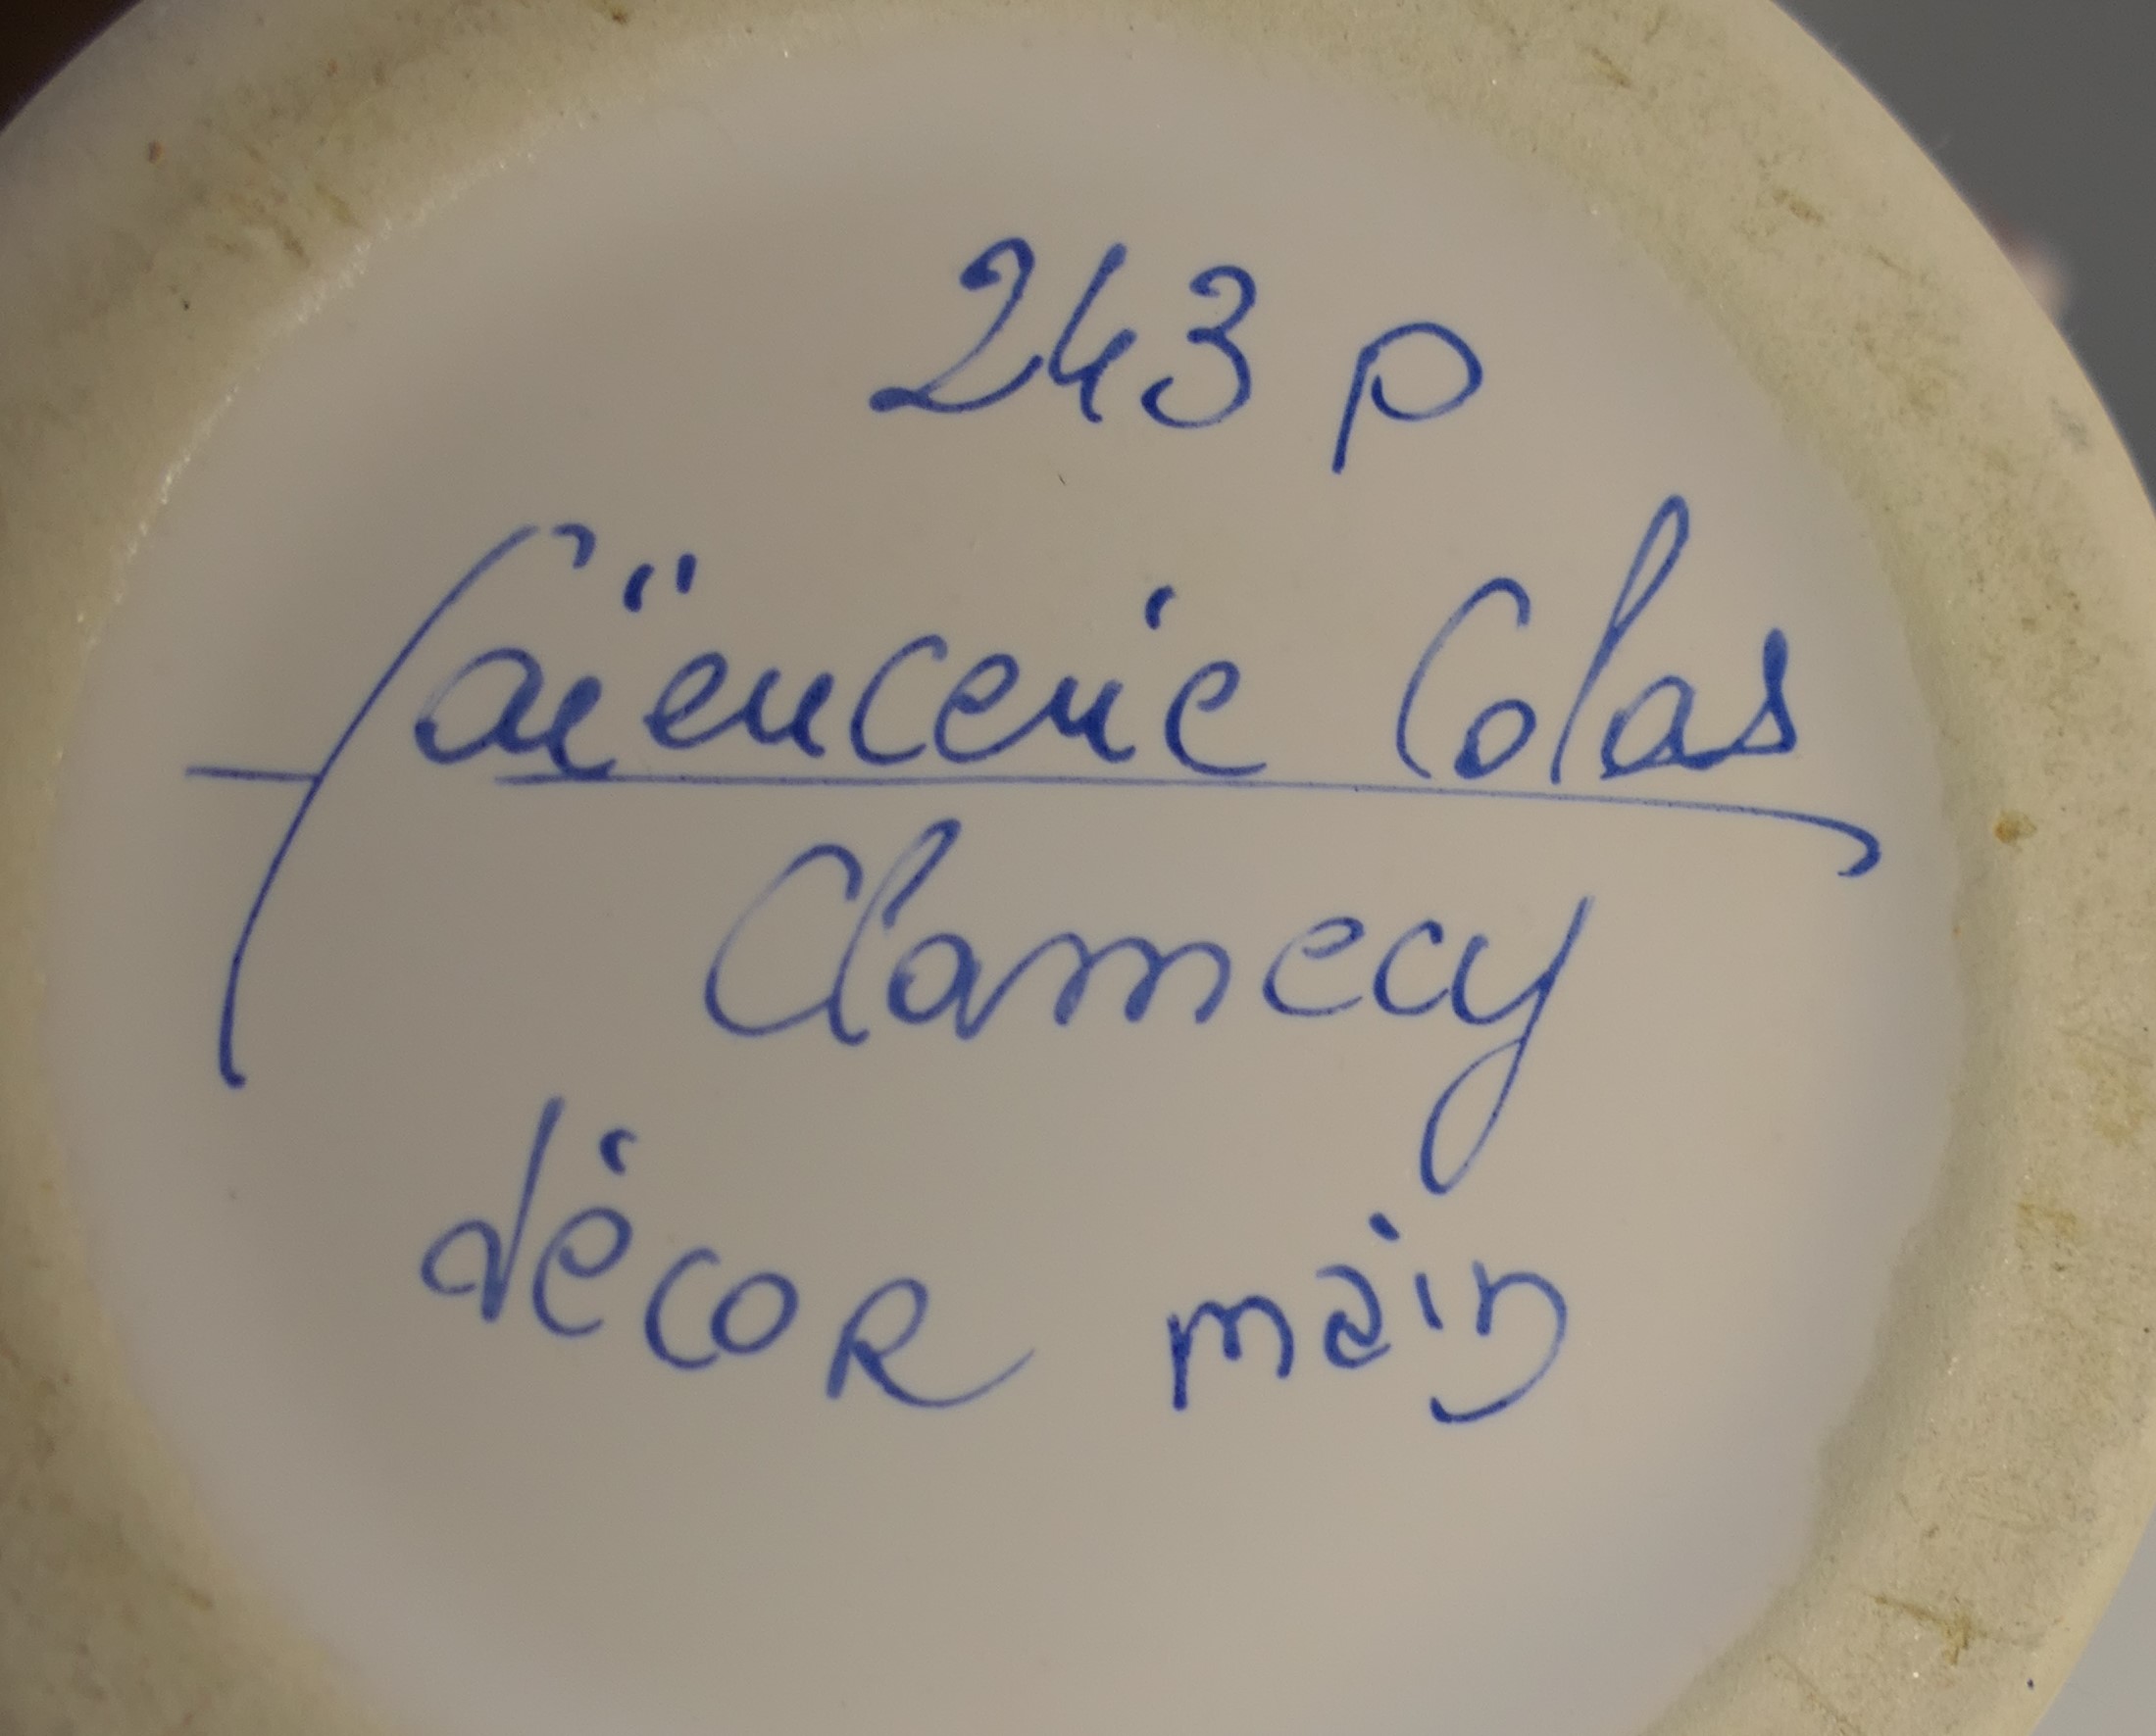 243 p
faïencerie Colas
Clamecy
décor main